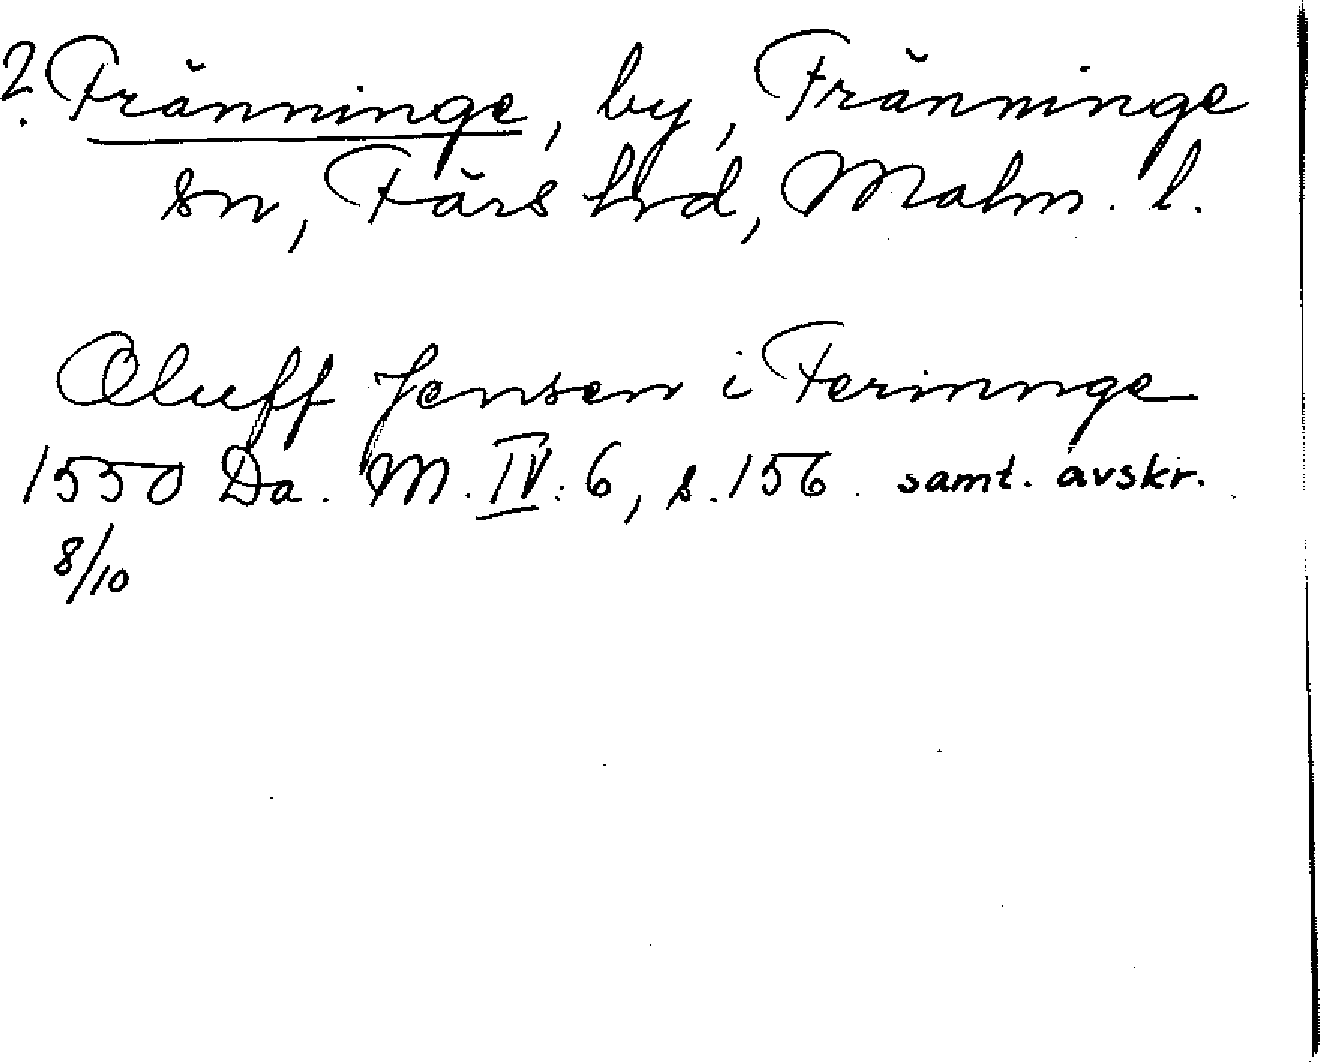 ? Fränninge, by, Fränninge
sn, Färs hrd, Malm. l.
Oluff Jensen i Ferinnge
1550 Da. M. IV: 6, s. 156. samt. avskr.
8/10